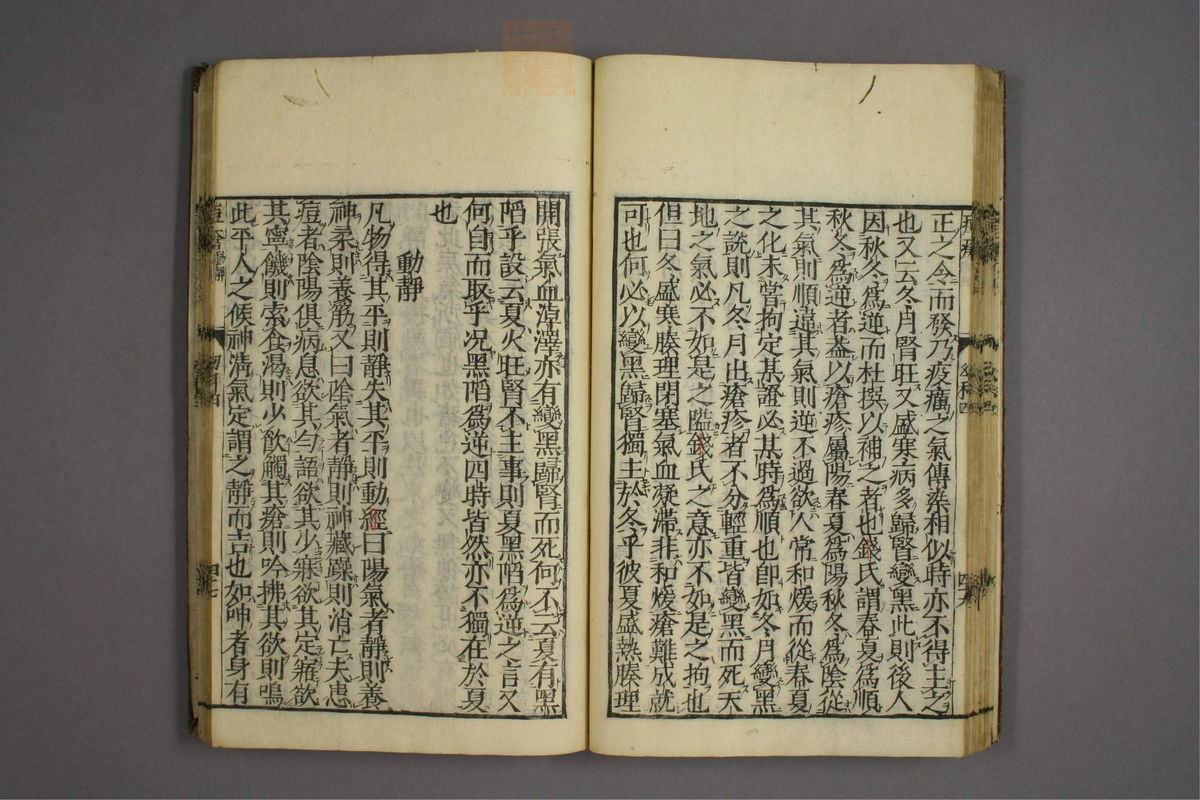 正之令而發乃疫癘之氣傳染相似時亦不得主之
也又云冬月腎旺又盛寒病多歸腎變黑此則後人
因秋冬爲逆而杜撰以補之者也錢氏謂春夏爲順
秋冬爲逆者蓋以瘡疹屬陽春夏爲陽秋冬爲陰從
其氣則順違其氣則逆不過欲人常和煖而從春夏
之化未嘗拘定某證必某時爲順也即如冬月變黑
之說則凡冬月出瘡疹者不分輕重皆變黑而死天
地之氣必不如是之隘錢氏之意亦不如是之拘也
但曰冬盛寒腠理閉塞氣血凝滯非和煖瘡難成就
可也何必以變黑歸腎獨主於冬乎彼夏盛熱腠理
開張氣血淖澤亦有變黑歸腎而死何不云夏有黑
陷乎設云夏火旺腎不主事則夏黑陷爲逆之言又
何自而取乎况黑陷爲逆四時皆然亦不獨在於夏
也
動靜
凡物得其平則靜失其平則動經曰陽氣者靜則養
神柔則養筋又曰陰氣者靜則神藏躁則消亡夫患
痘者陰陽俱病息欲其勻語欲其少寐欲其定寤欲
其寧饑則索食渴則少飲觸其瘡則吟拂其欲則嗚
此平人之候神清氣定謂之靜而吉也如呻者身有
四七